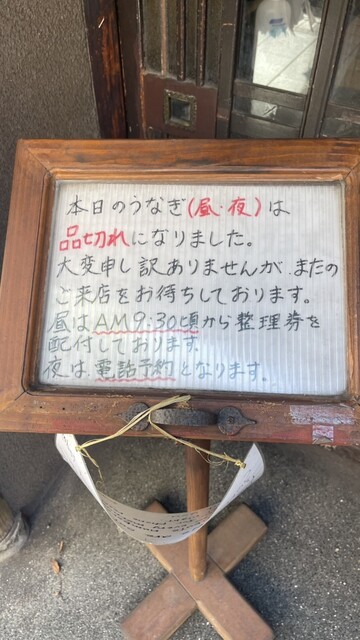 本日のうなぎ(昼・夜)は
品切れになりました。
大変申し訳ありませんが、またの
ご来店をお待ちしております。
昼はAM9:30頃から整理券を
配付しております。
夜は、電話予約となります。